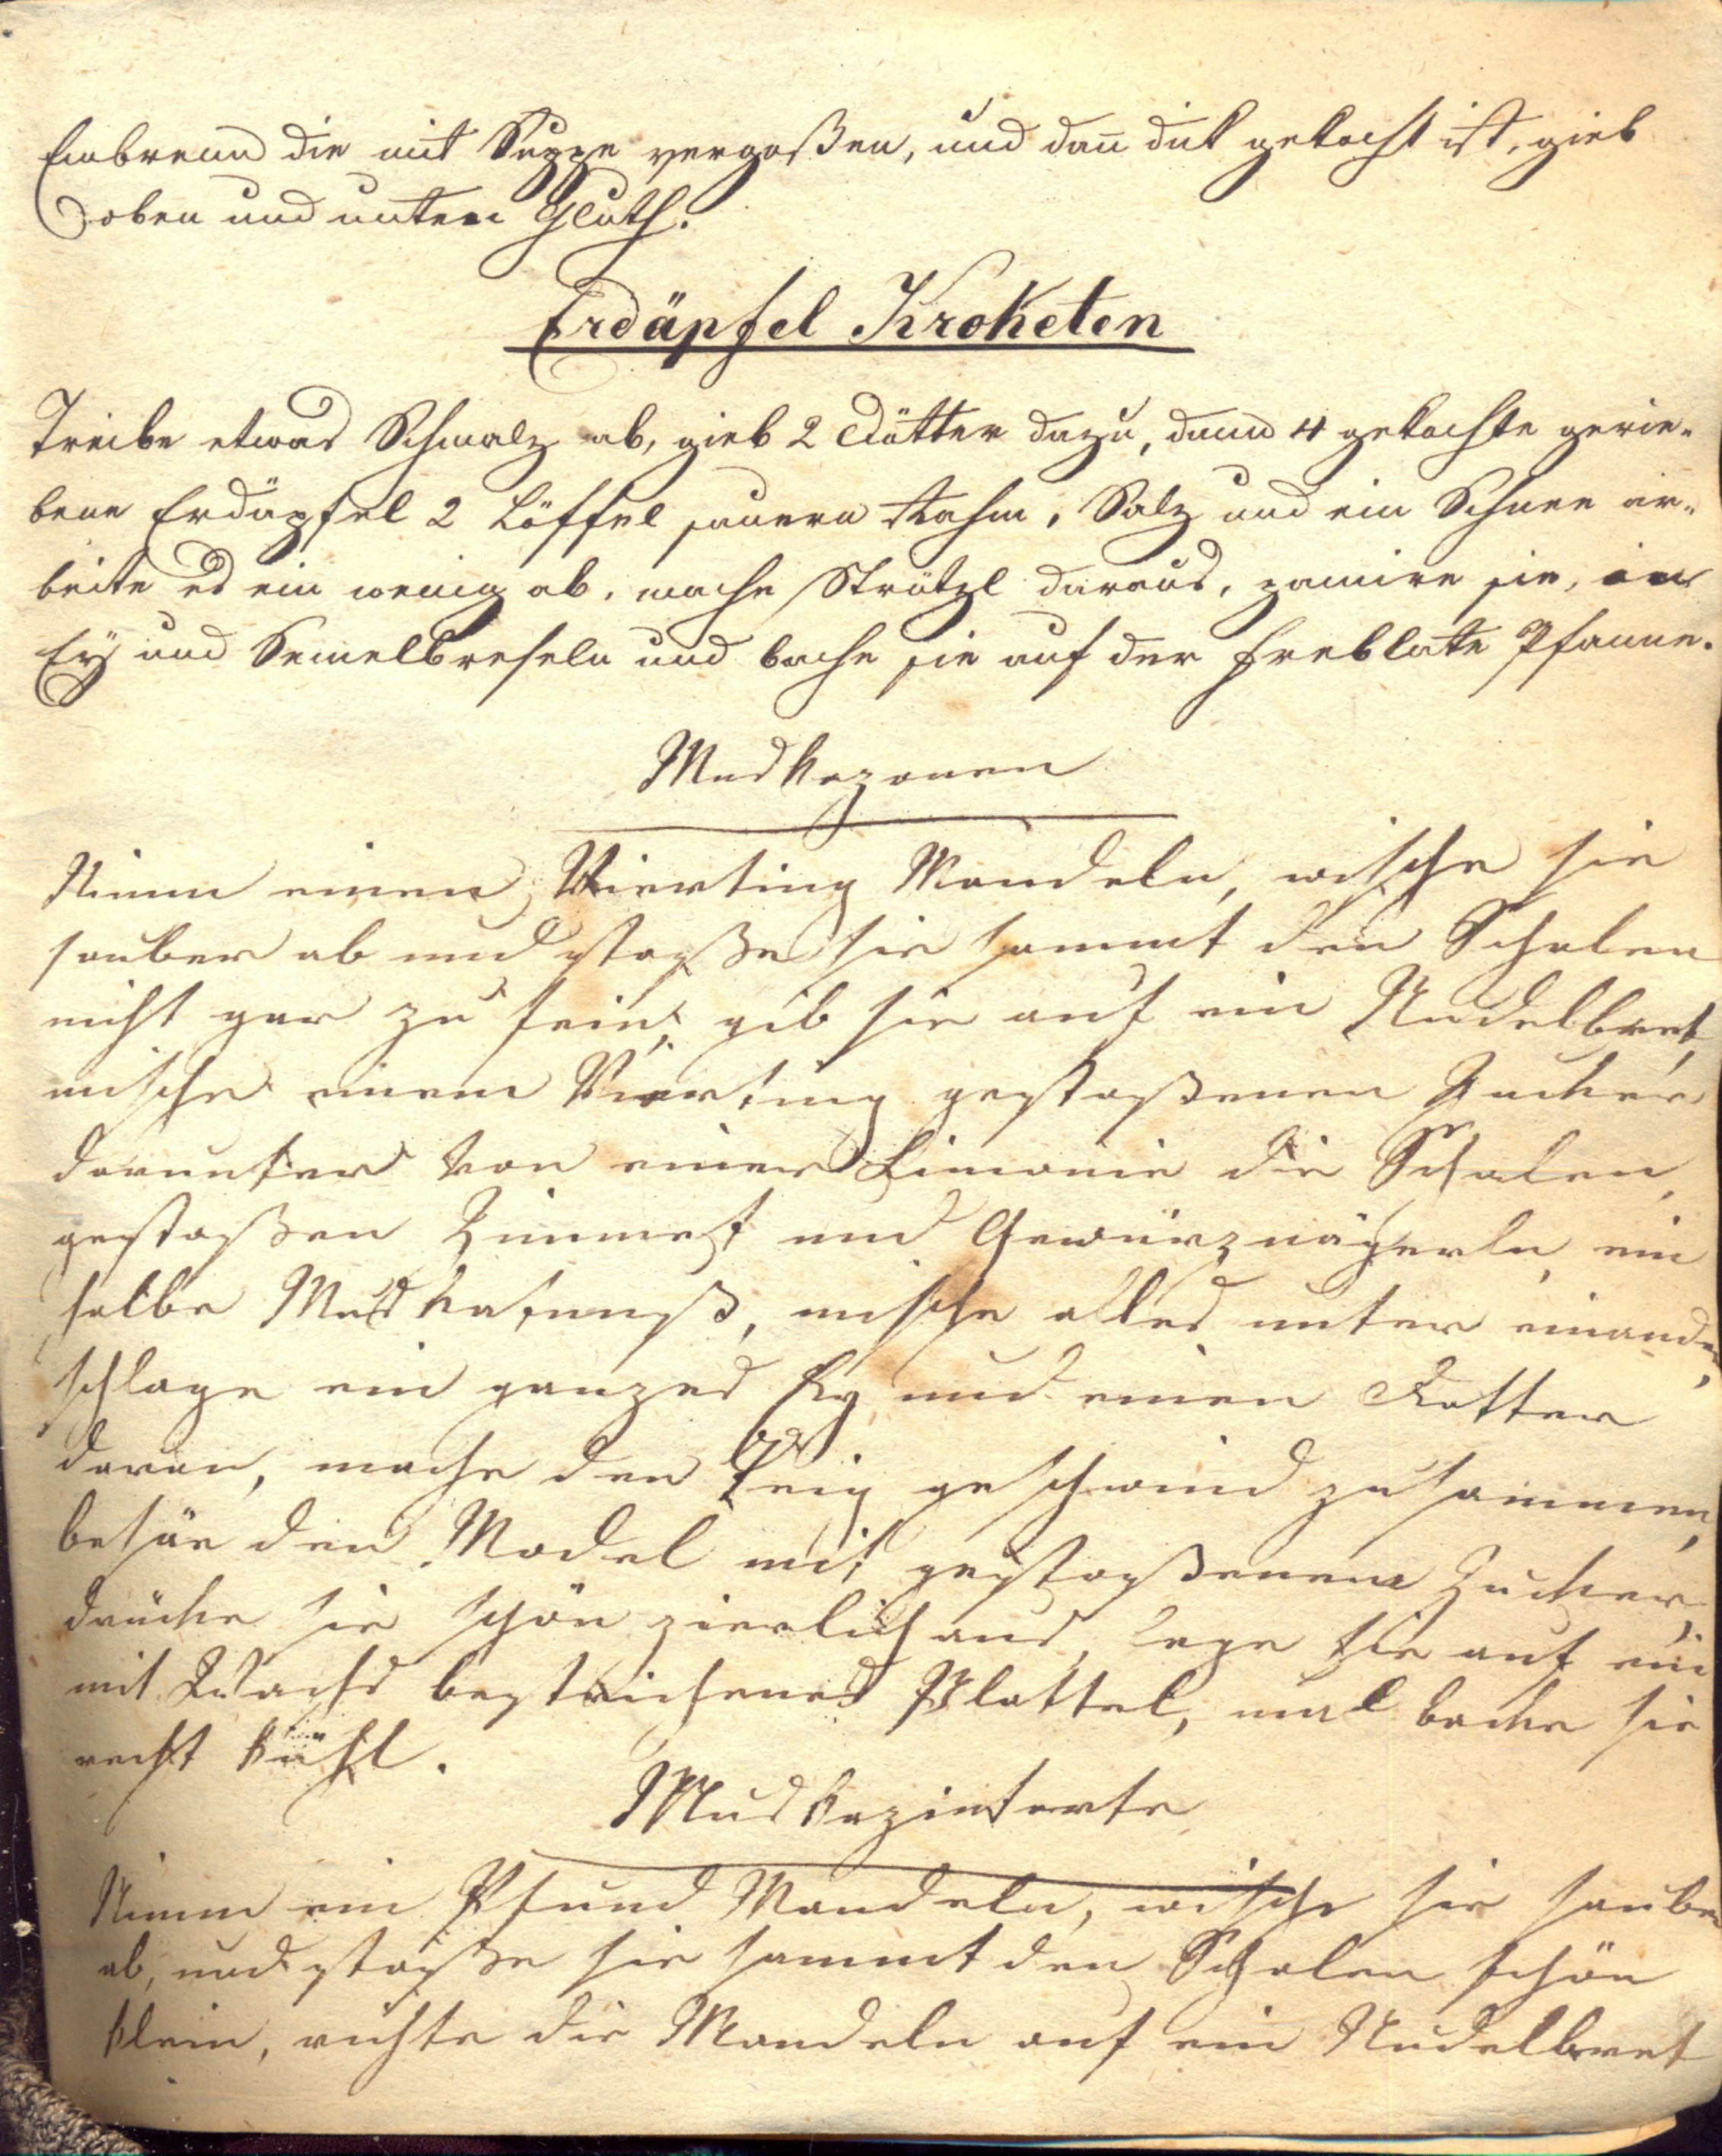 Einbrenn die mit Suppe vergoßen, und dañ dik gekocht ist, gieb
oben und unten Gluth.
Erdäpfel Kroketen
Treibe etwas Schmalz ab, gieb 2 Dötter dazu, dann 4 gekochte gerie-
bene Erdäpfel 2 Löffel sauern Rahm, Salz und ein Schnee ar-
beite es ein wenig ab, mache Strützl daraus, panire sie, in
Ey und Semelbreseln und bache sie auf der Pfanne.
Muskazonen
Nimm einen Vierting Mandeln, wische sie
sauber ab und stoße sie sammt den Schalen
nicht gar zu fein, gib sie auf ein Nudelbret,
mische einen Vierting gestoßenen Zucker
darunter von einer Limonie die Schalen,
gestoßen Zimmet und Gewürznägerln, ein
halbe Muskatnuß, mische alles unter einander,
schlage ein ganzes Ey und einen Dotter
daran, mache den Teig geschwind zusammen,
besäe den Model mit gestoßenem Zucker,
drücke sie schön zierlich aus, lege sie auf ein
mit Wachs bestrichenes Blattel, und backe sie
recht kühl.
Muskazintorte
Nimm ein Pfund Mandeln, wische sie sauber
ab, und stoße sie sammt den Schalen schön
klein, richte die Mandeln auf ein Nudelbret